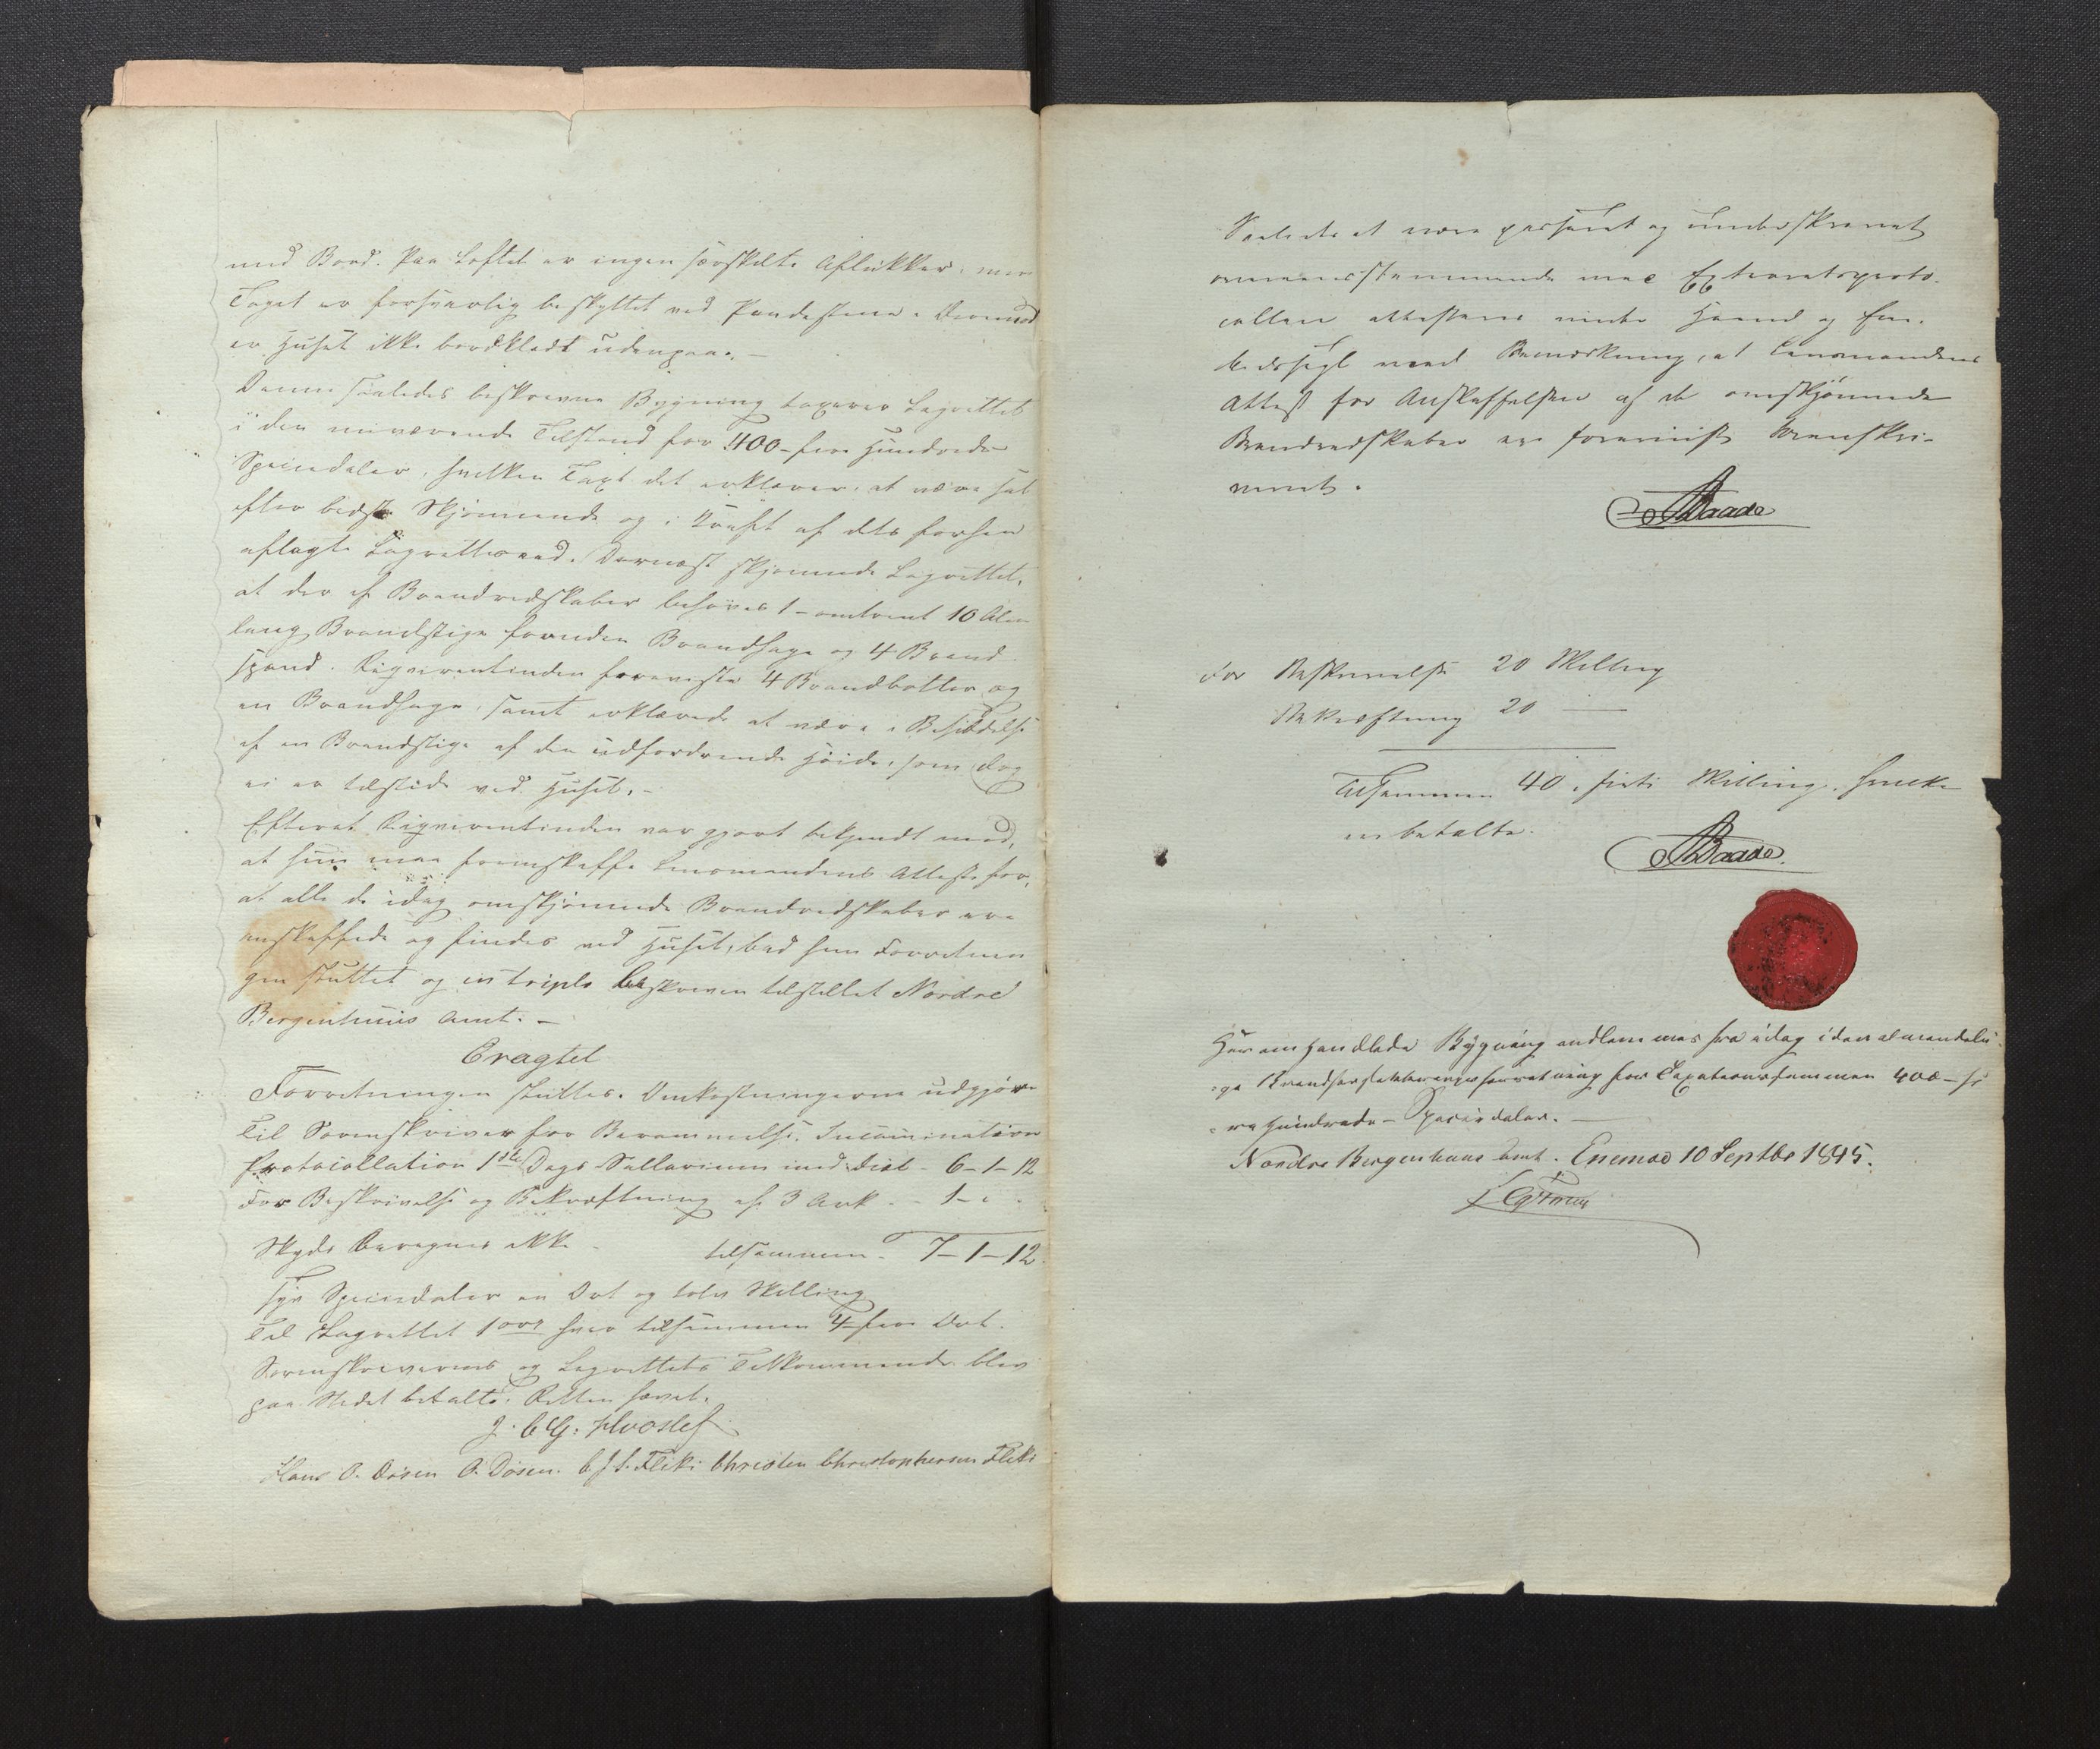 med Bord. Paa Loftet er ingen særskilte Aflukker, men
Taget er forsvarlig beskyttet ved Pandestene. Derimod
er Huset ikke bordklædt udenpaa. —
Denne saaledes beskrevne Bygning taxerer Lagrettet
i den nuværende Tilstand for 400 – fire Hundrede
Speciedaler, hvilken Taxt det erklærer at være sat
efter bedste Skjønnende og i Kraft af dets forhen
aflagte Lagrettesed. Dernæst skjønnede Lagrettet,
at der af Brandredskaber behøves 1 – omtrent 10 Alen
lang Brandstige foruden Brandhage og 4 Brand
spand. Reqvirentinden foreviste 4 Brandbøtter og
en Brandhage, samt erklærede at være i Besiddelse
af en Brandstige af den udfordrende Høide, som dog
ei er tilstede ved Huset. –
Efterat Reqvirentinden var gjort bekjendt med,
at hun maa fremskaffe Lensmandens Attest for,
at alle de idag omskjønnede Brandredskaber ere
anskaffede og findes ved Huset, bad hun Forretnin
gen sluttet og in triplo beskreven tilstillet Nordre
Bergenhuus Amt. –
Eragtet
Forretningen sluttes. Omkostningerne udgjøre
Til Sorenskriver for Berammelse, Incamination
Protocollation 1ste Dags Sallarium med Diæt – 6–1–12
For Beskrivelse og Bekræftning af 3 Ark – – 1 – „ –
Skyds beregnes ikke – tilsammen – 7–1–12
syv Speciedaler en Ort og tolv Skilling
Til Lagrettet 1 ort hver tilsammen 4 – fire Ort.
Sorenskriverens og Lagrettets Tilkommende blev
paa Stedet betalte. Retten hævet.
J. C. G. Hvoslef
Hans O. Døsen O. Døsen. C. J. S. Fleke Christen Christophersen Fleke
Saaledes at være passeret og underskrevet
overensstemmende med Extraretsproto-
collen attesteres under Haand og Em-
bedssegl med Bemærkning, at Lensmandens
Attest for Anskaffelsen af de omskjønnede
Brandredskaber er foreviist Sorenskri-
veriet.
Baade
For Beskrivelse 20 Skilling
Bekræftning 20 —
Tilsammen 40, firti Skilling, hvilke
er betalte.
Baade
Heromhandlede Bygning indlemmes fra idag i den almindeli-
ge Brandforsikkringsforretning for Taxationssummen 400 – fi
re hundrede – Speciedaler. —
Nordre Bergenhuus Amt. 10 Septbr 1845.